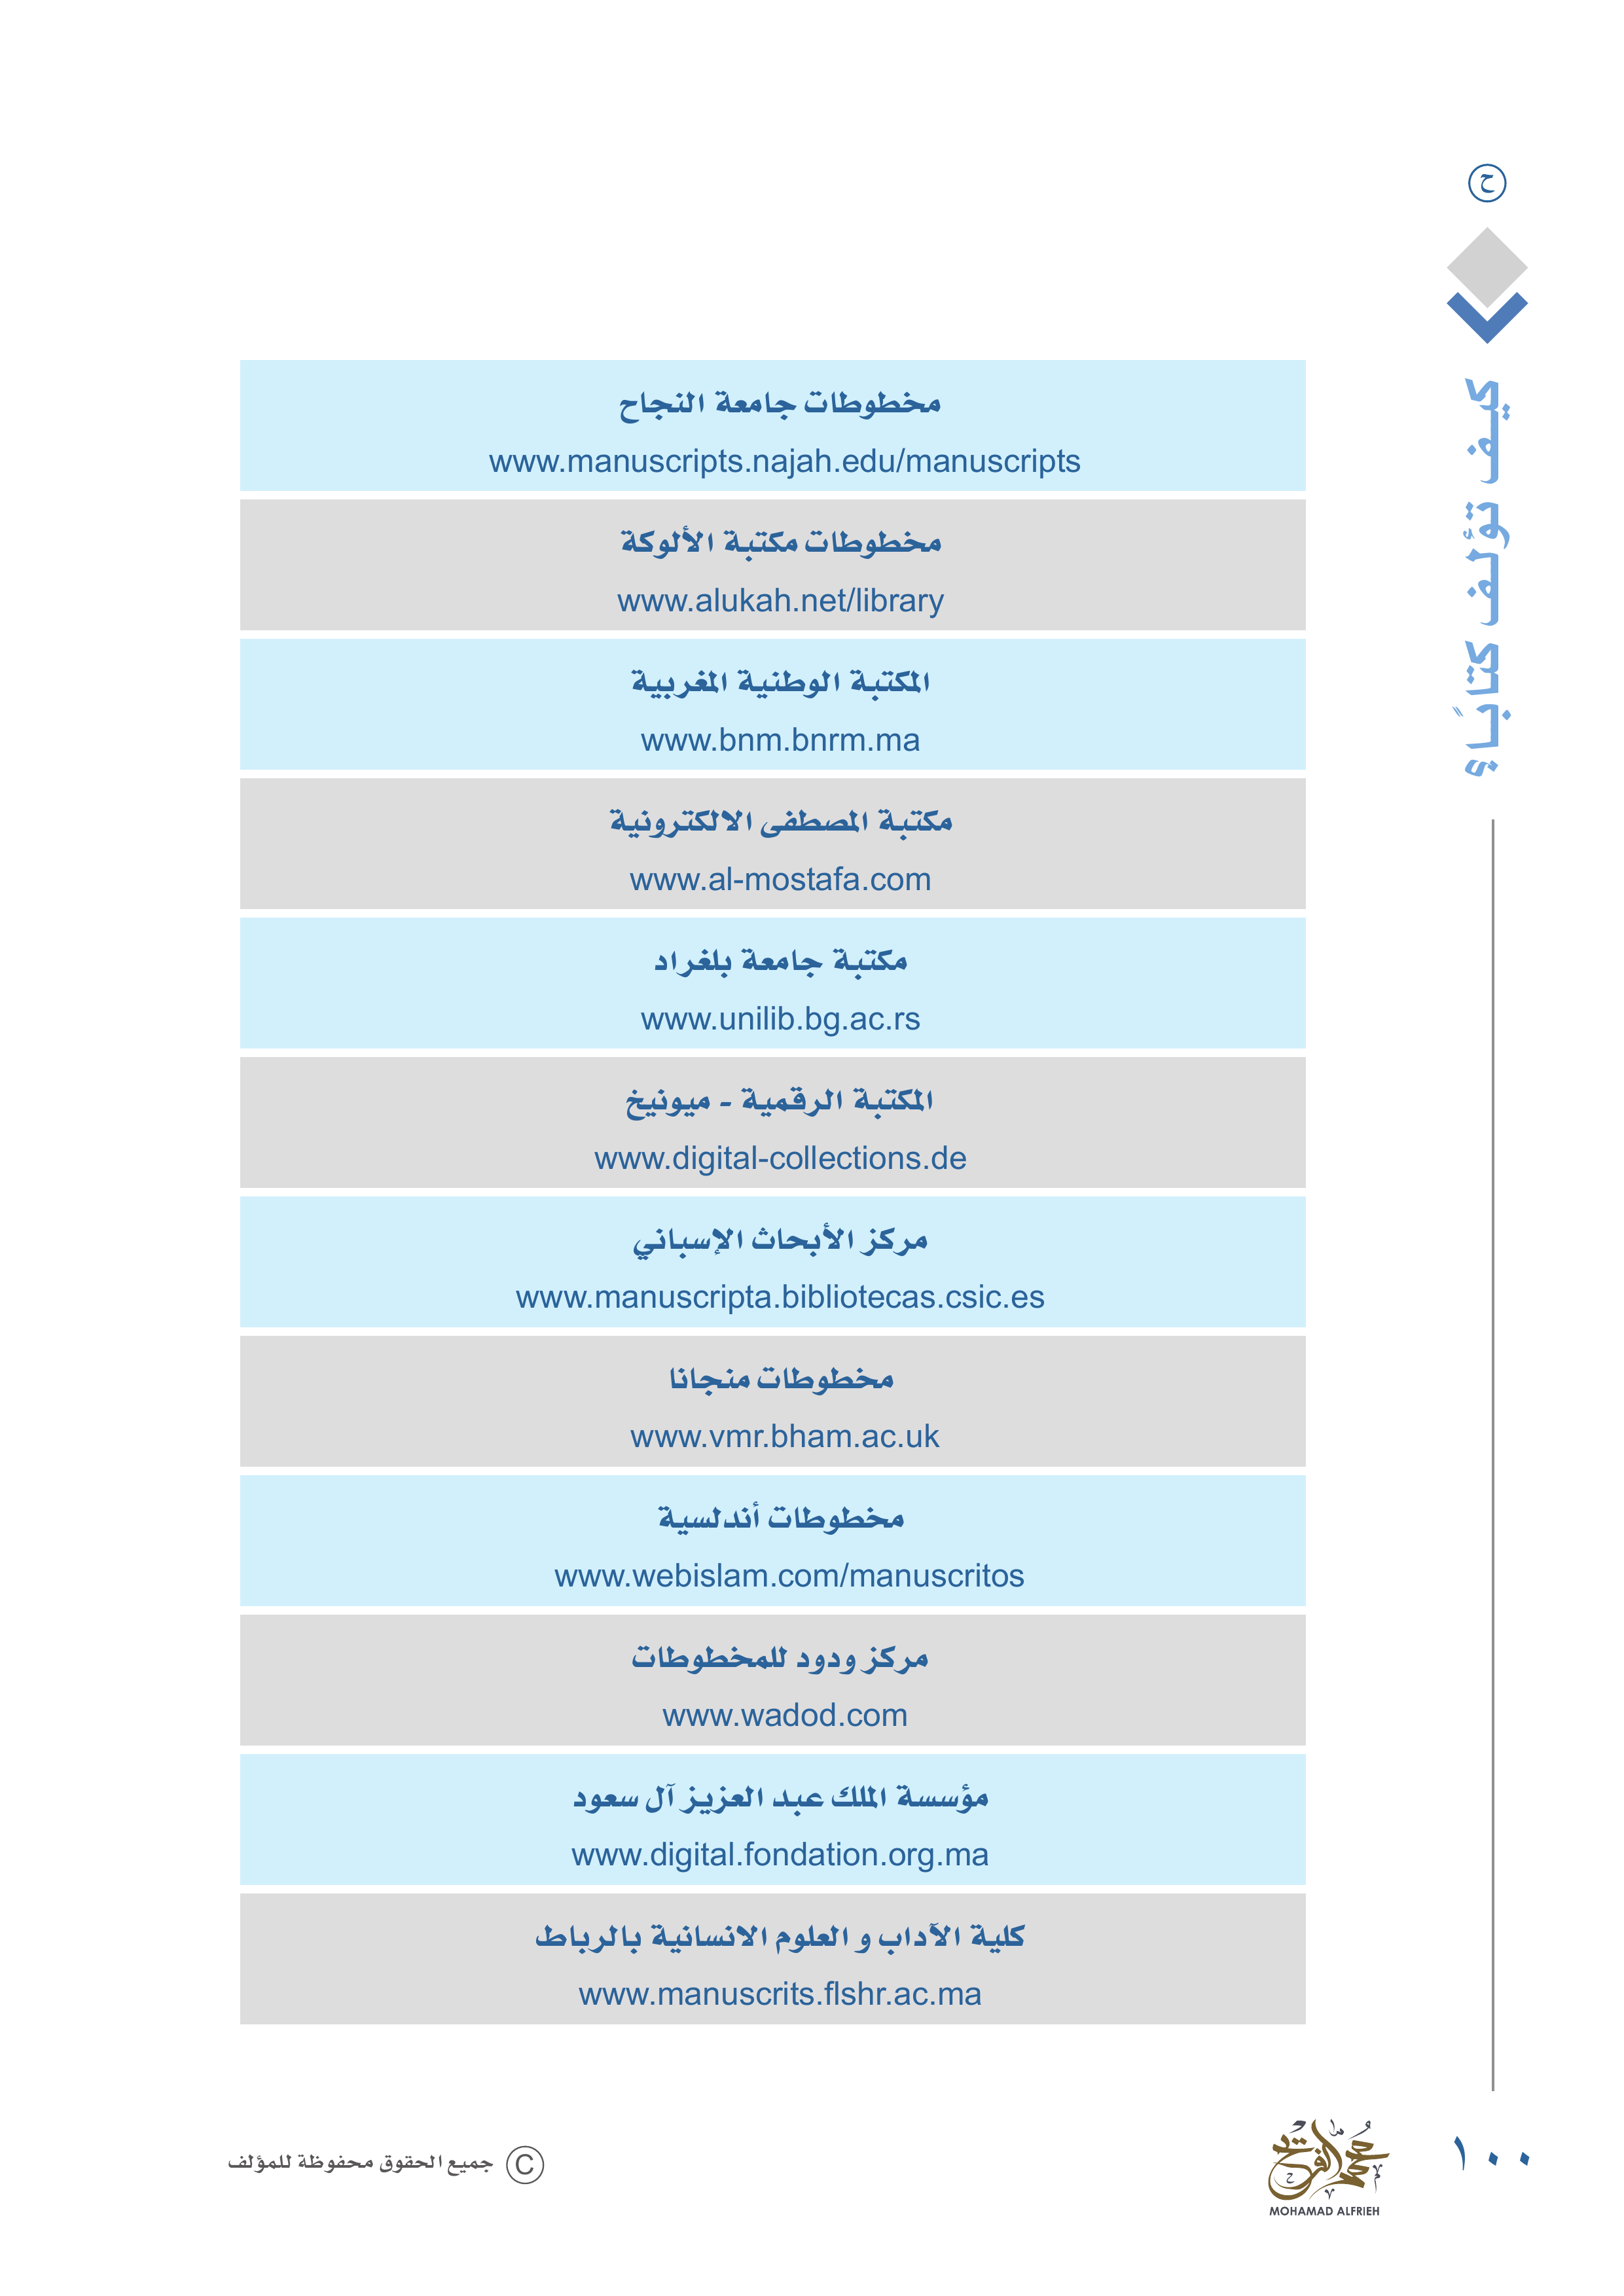 ح
كيف تؤلف كتابًا؟
مخطوطات جامعة النجاح
www.manuscripts.najah.edu/manuscripts
مخطوطات مكتبة الألوكة
www.alukah.net/library
المكتبة الوطنية المغربية
www.bnm.bnrm.ma
مكتبة المصطفى الالكترونية
www.al-mostafa.com
مكتبة جامعة بلغراد
www.unilib.bg.ac.rs
المكتبة الرقمية - ميونيخ
www.digital-collections.de
مركز الأبحاث الإسباني
www.manuscripta.bibliotecas.csic.es
مخطوطات منجانا
www.vmr.bham.ac.uk
مخطوطات أندلسية
www.webislam.com/manuscritos
مركز ودود للمخطوطات
www.wadod.com
مؤسسة الملك عبد العزيز آل سعود
www.digital.fondation.org.ma
كلية الآداب و العلوم الانسانية بالرباط
www.manuscrits.flshr.ac.ma
١٠٠
محمد الفريح
MOHAMAD ALFRIEH
© جميع الحقوق محفوظة للمؤلف